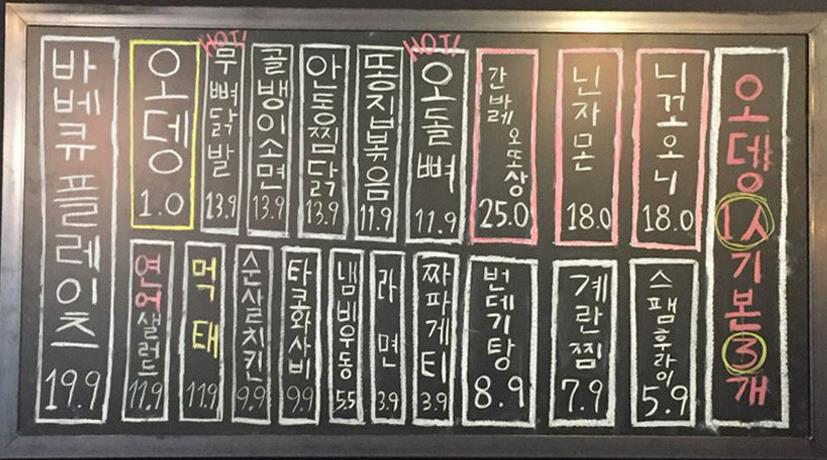 바베큐플레이츠
19.9
오뎅
1.0
HOT!
무뼈닭발
13.9
골뱅이소면
13.9
안동찜닭
13.9
똥집볶음
11.9
HOT!
오돌뼈
11.9
간바레
오또상
25.0
닌자몬
18.0
니꼬오니
18.0
오뎅
1人
기본
3개
연어샐러드
11.9
먹태
11.9
순살치킨
9.9
타코와사비
9.9
냄비우동
5.5
라면
3.9
짜파게티
3.9
번데기탕
8.9
계란찜
7.9
스팸후라이
5.9